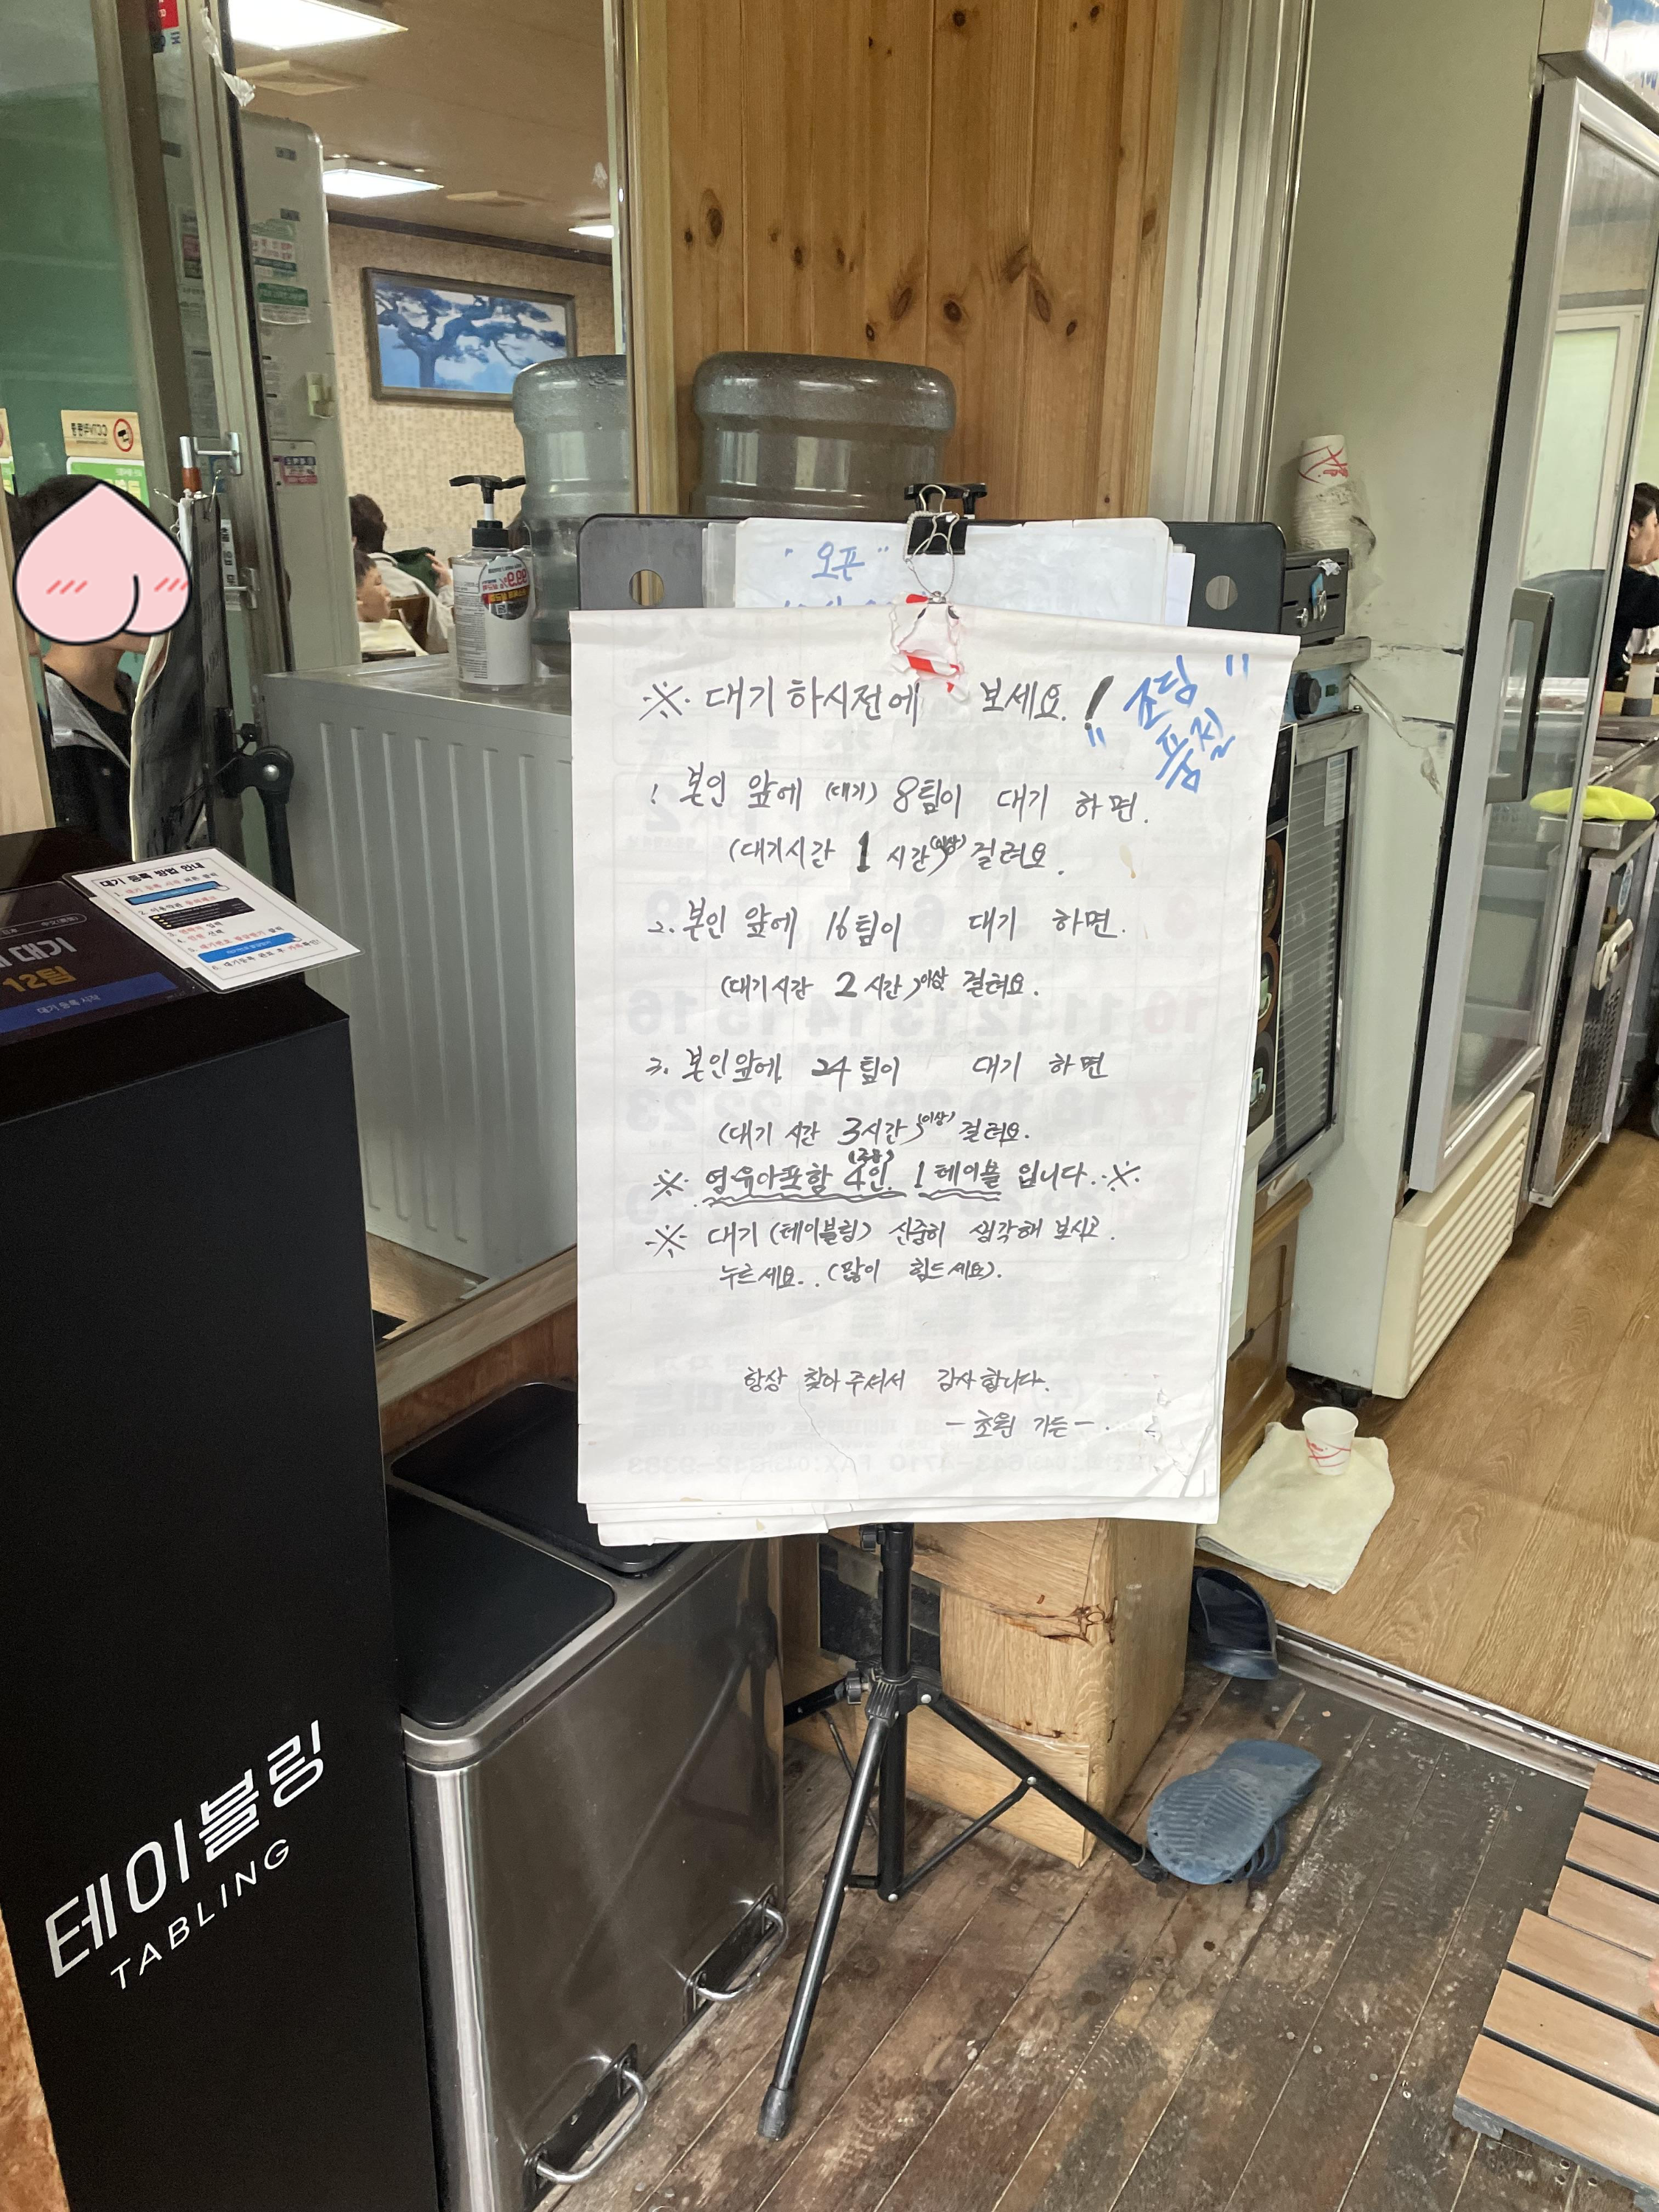 " 오픈 "
※ 대기 하시전에 보세요. !
" 쪼림
품절 "
1. 본인 앞에 (대기) 8팀이 대기 하면.
(대기시간 1 시간) (이상) 걸려요.
2. 본인 앞에 16팀이 대기 하면.
(대기시간 2 시간) 이상 걸려요.
3. 본인앞에 24팀이 대기 하면
(대기 시간 3시간) (이상) 걸려요.
※ 영유아포함 4인. 1 테이블 입니다. ※
※ 대기 (테이블링) 신중히 생각해 보시고.
누르세요.. (많이 힘드세요).
항상 찾아 주셔서 감사합니다.
- 초원 가든 - .
대기 등록 방법 안내
대기
12팀
대기 등록 시작
테이블링
TABLING